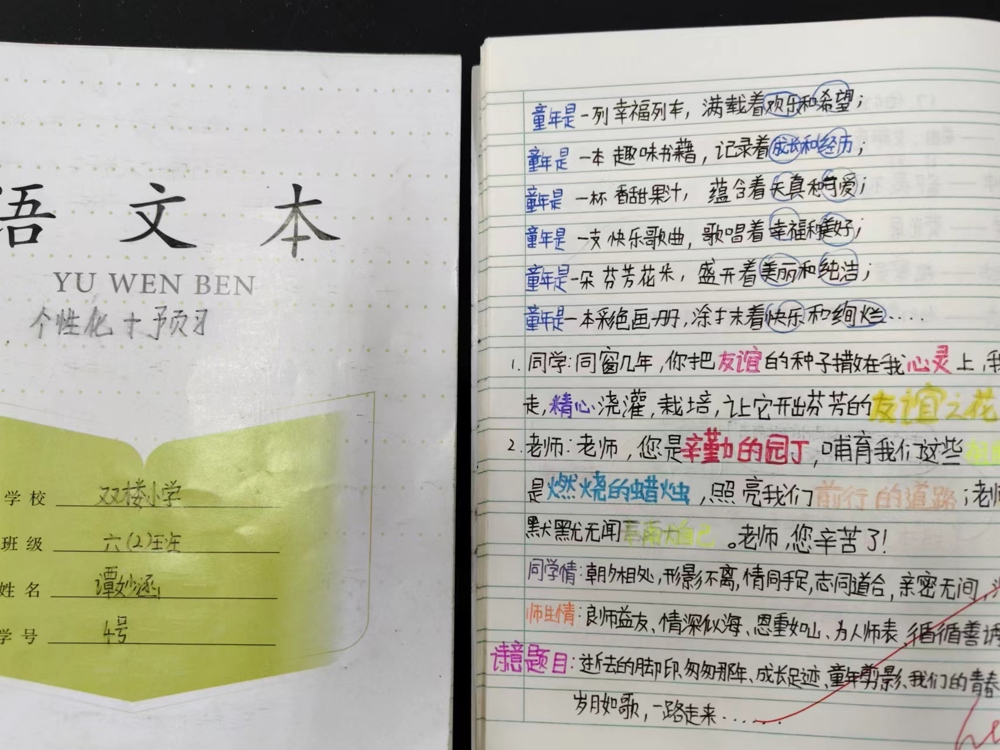 语文本
YU WEN BEN
个性化+预习
学校 双楼小学
班级 六(2)班
姓名 谭妙涵
学号 4号
童年是一列幸福列车，满载着欢乐和希望；
童年是一本趣味书籍，记录着成长和经历；
童年是一杯香甜果汁，蕴含着天真和可爱；
童年是一支快乐歌曲，歌唱着幸福和美好；
童年是一朵芬芳花朵，盛开着美丽和纯洁；
童年是一本彩色画册，涂抹着快乐和绚烂……
1. 同学：同窗几年，你把友谊的种子撒在我心灵上，我
走，精心浇灌，栽培，让它开出芬芳的友谊之花
2. 老师：老师，您是辛勤的园丁，哺育我们这些
是燃烧的蜡烛，照亮我们前行的道路；老师
默默无闻 。老师，您辛苦了！
同学情：朝夕相处、形影不离，情同手足，志同道合，亲密无间，
师生情：良师益友、情深似海、恩重如山、为人师表、循循善诱
诗意题目：逝去的脚印、匆匆那年、成长足迹、童年剪影、我们的青春
岁月如歌，一路走来……